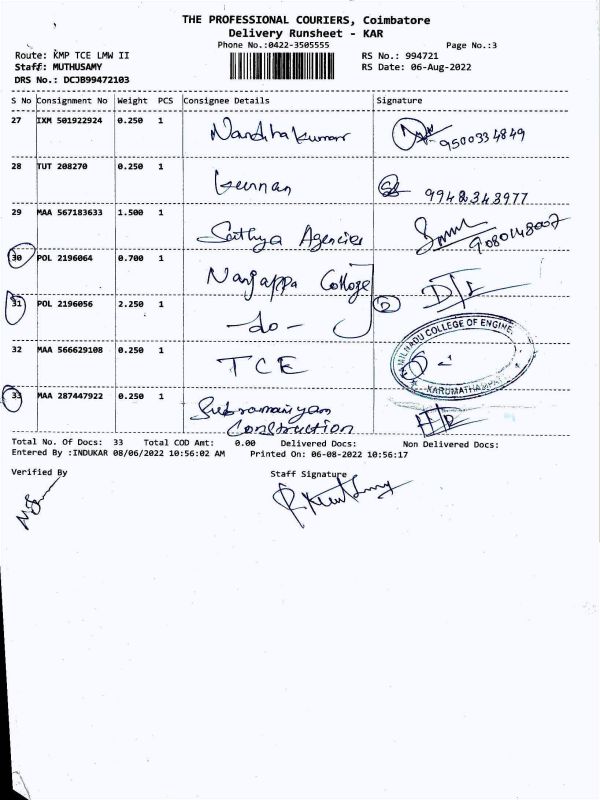 THE PROFESSIONAL COURIERS, Coimbatore
Delivery Runsheet - KAR
Phone No.:0422-3505555 Page No.:3
Route: KMP TCE LMW II RS No.: 994721
Staff: MUTHUSAMY RS Date: 06-Aug-2022
DRS No.: DCJB99472103
S No Consignment No Weight PCS Consignee Details Signature
27 IXM 501922924 0.250 1 Nandhakumar 9500334849
28 TUT 208270 0.250 1 9942343977
29 MAA 567183633 1.500 1 Sathya Agencies 9080148007
30 POL 2196064 0.700 1 Nanjappa College
31 POL 2196056 2.250 1 -do-
32 MAA 566629108 0.250 1 TCE
TAMILNADU COLLEGE OF ENGINE
KARUMATHAMPATTI
33 MAA 287447922 0.250 1 Subramaniyam
Construction
Total No. Of Docs: 33 Total COD Amt: 0.00 Delivered Docs: Non Delivered Docs:
Entered By :INDUKAR 08/06/2022 10:56:02 AM Printed On: 06-08-2022 10:56:17
Verified By Staff Signature